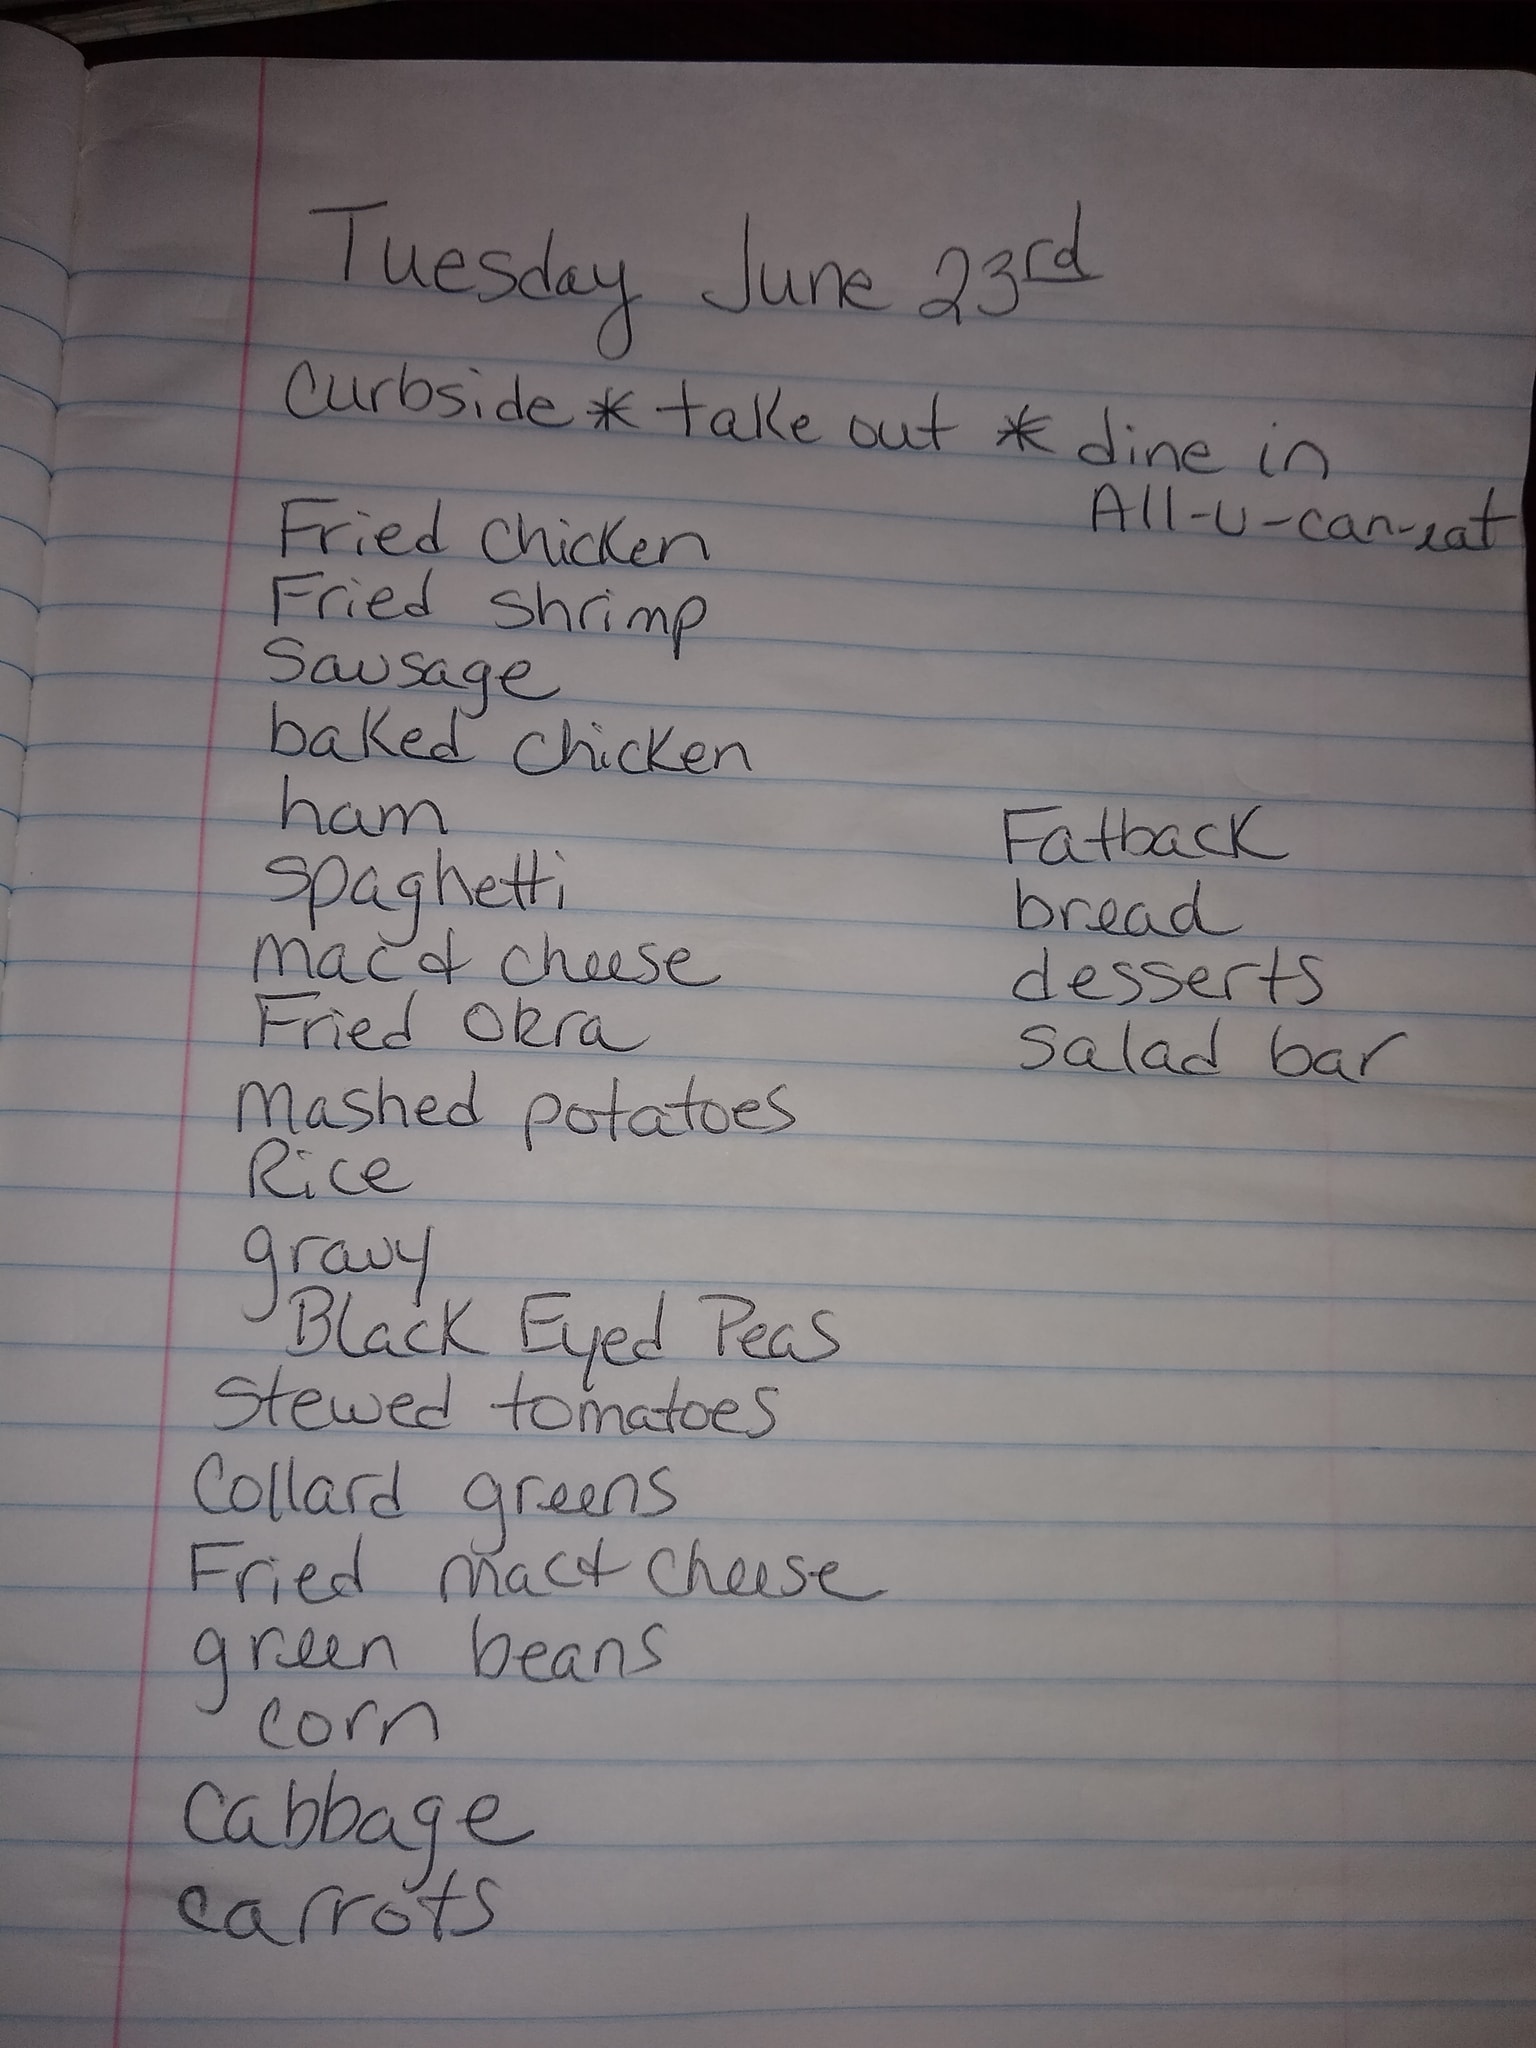 Tuesday June 23rd
Curbside * take out * dine in
All-u-can-eat
Fried chicken
Fried shrimp
Sausage
baked chicken
ham
spaghetti
mac & cheese
Fried okra
Mashed potatoes
Rice
gravy
Black Eyed Peas
Stewed tomatoes
Collard greens
Fried mac & cheese
green beans
corn
Cabbage
carrots
Fatback
bread
desserts
Salad bar